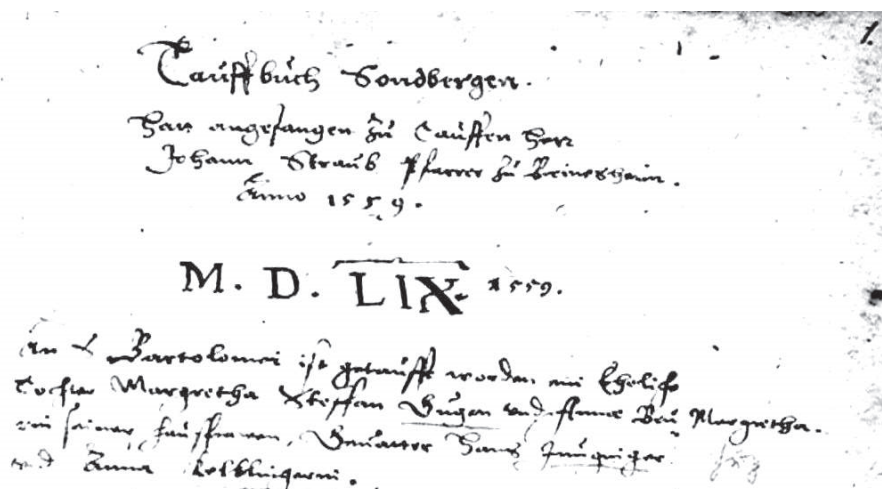 1.
Tauffbuch Sondbergen.
Hatt angefangen zu Tauffen Herr
Johann Straub Pfarrer zu
Anno 1559.
M. D. LIX. 1559.
An S Bartolomei ist getaufft worden ein Ehelich
Tochter Margretha Steffan und Margretha.
seiner Haussfrawen, Gevatter Hans
und Anna